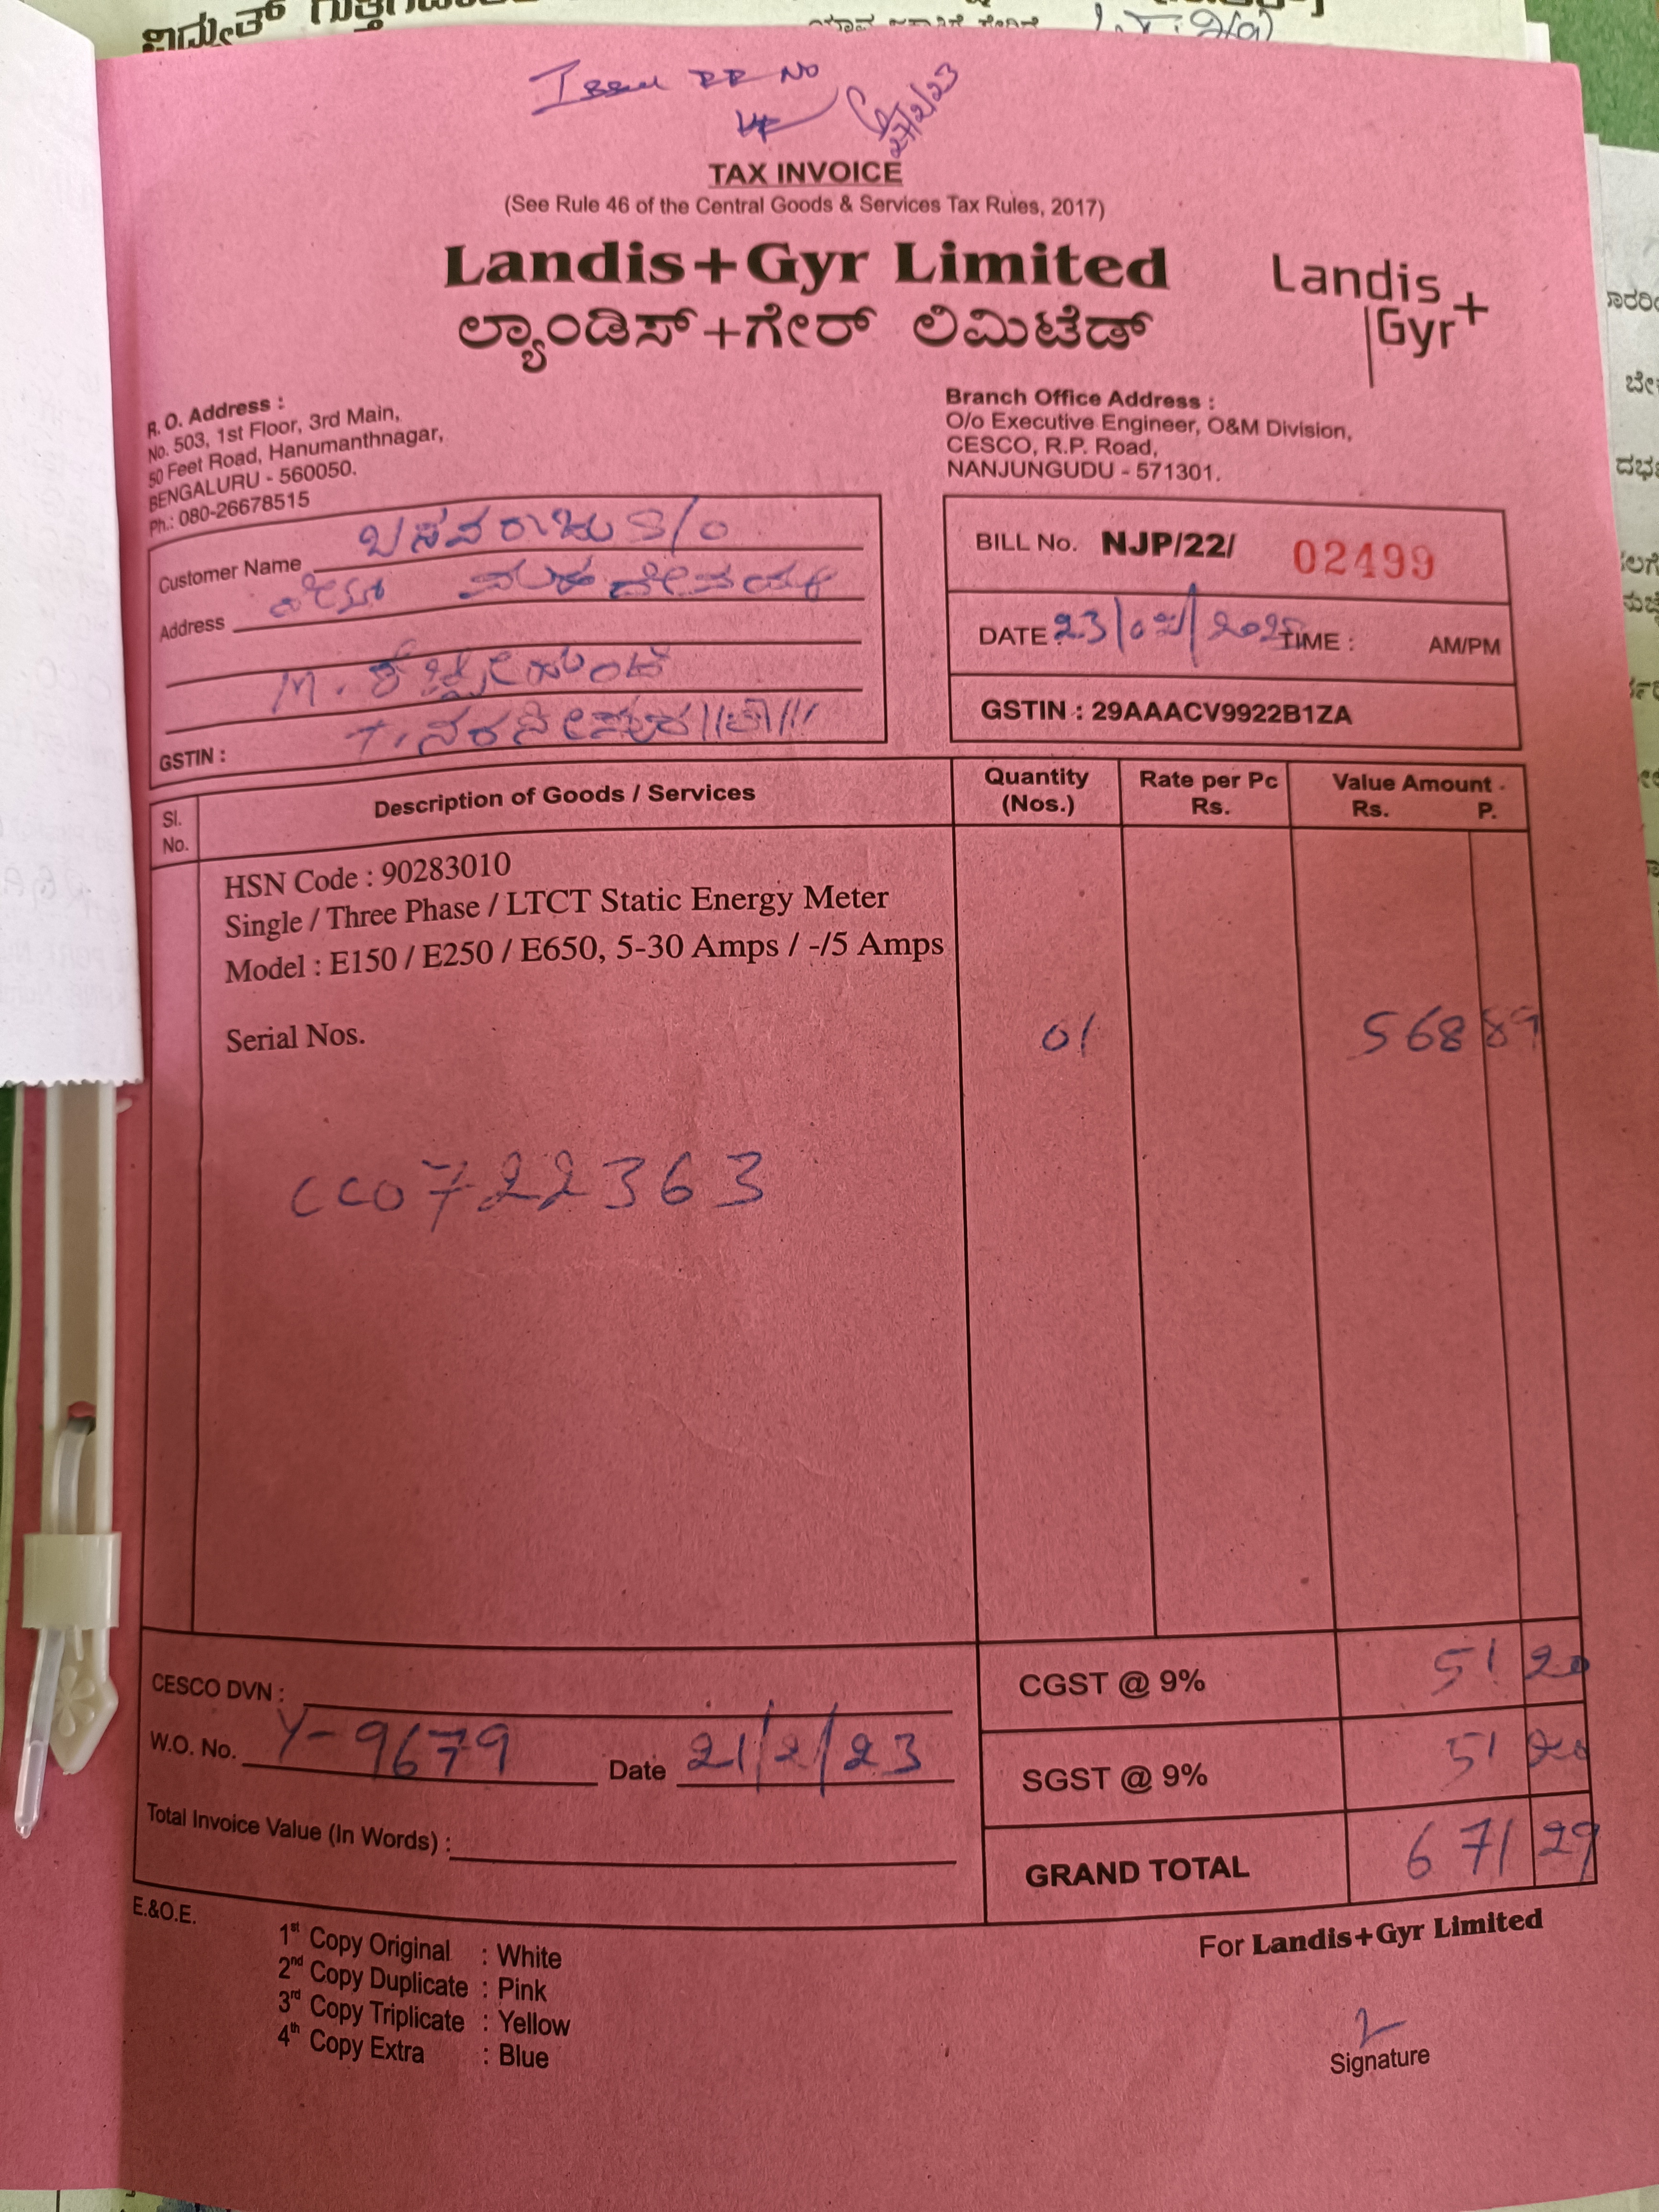 ವಿದ್ಯುತ್
Issue RR No
27/2/23
TAX INVOICE
(See Rule 46 of the Central Goods & Services Tax Rules, 2017)
Landis+Gyr Limited
ಲ್ಯಾಂಡಿಸ್+ಗೇರ್ ಲಿಮಿಟೆಡ್
Landis
Gyr+
R. O. Address :
No. 503, 1st Floor, 3rd Main,
50 Feet Road, Hanumanthnagar,
BENGALURU - 560050.
Ph.: 080-26678515
Branch Office Address :
O/o Executive Engineer, O&M Division,
CESCO, R.P. Road,
NANJUNGUDU - 571301.
Customer Name ಬಸವರಾಜು S/O
Address
M.
T. ನರಸೀಪುರ
GSTIN :
BILL No. NJP/22/ 02499
DATE : 23/02/ TIME : AM/PM
GSTIN : 29AAACV9922B1ZA
Sl. No. Description of Goods / Services Quantity (Nos.) Rate per Pc Rs. Value Amount Rs. P.
HSN Code : 90283010
Single / Three Phase / LTCT Static Energy Meter
Model : E150 / E250 / E650, 5-30 Amps / -/5 Amps
Serial Nos. 01 568 89
CC0722363
CESCO DVN :
W.O. No. Y-9679 Date 21/2/23
Total Invoice Value (In Words) :
CGST @ 9% 51 20
SGST @ 9% 51 20
GRAND TOTAL 671 29
E.&O.E.
1st Copy Original : White
2nd Copy Duplicate : Pink
3rd Copy Triplicate : Yellow
4th Copy Extra : Blue
For Landis+Gyr Limited
Signature